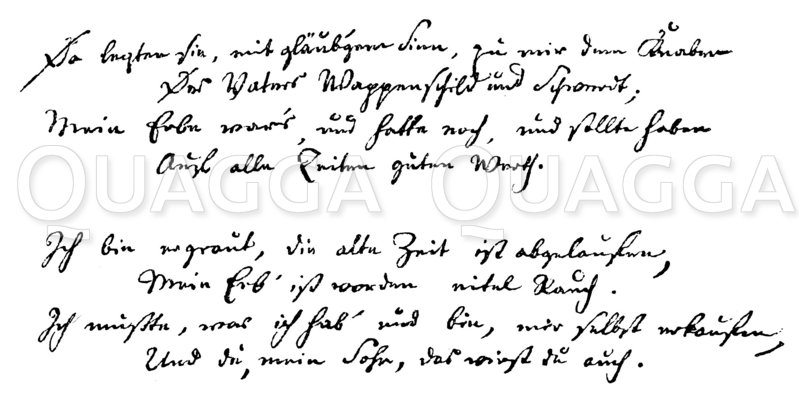 Da legten sie, mit gläub'gem Sinn, zu mir dem Knaben
Des Vaters Wappenschild und Schwerdt;
Mein Erbe war's, und hatte noch, und sollte haben
Auf alle Zeiten guten Werth.
QUAGGA QUAGGA
Ich bin ergraut, die alte Zeit ist abgelaufen,
Mein Erb' ist worden eitel Rauch.
Ich mußte, was ich hab' und bin, mir selbst erkaufen,
Und du, mein Sohn, das wirst du auch.